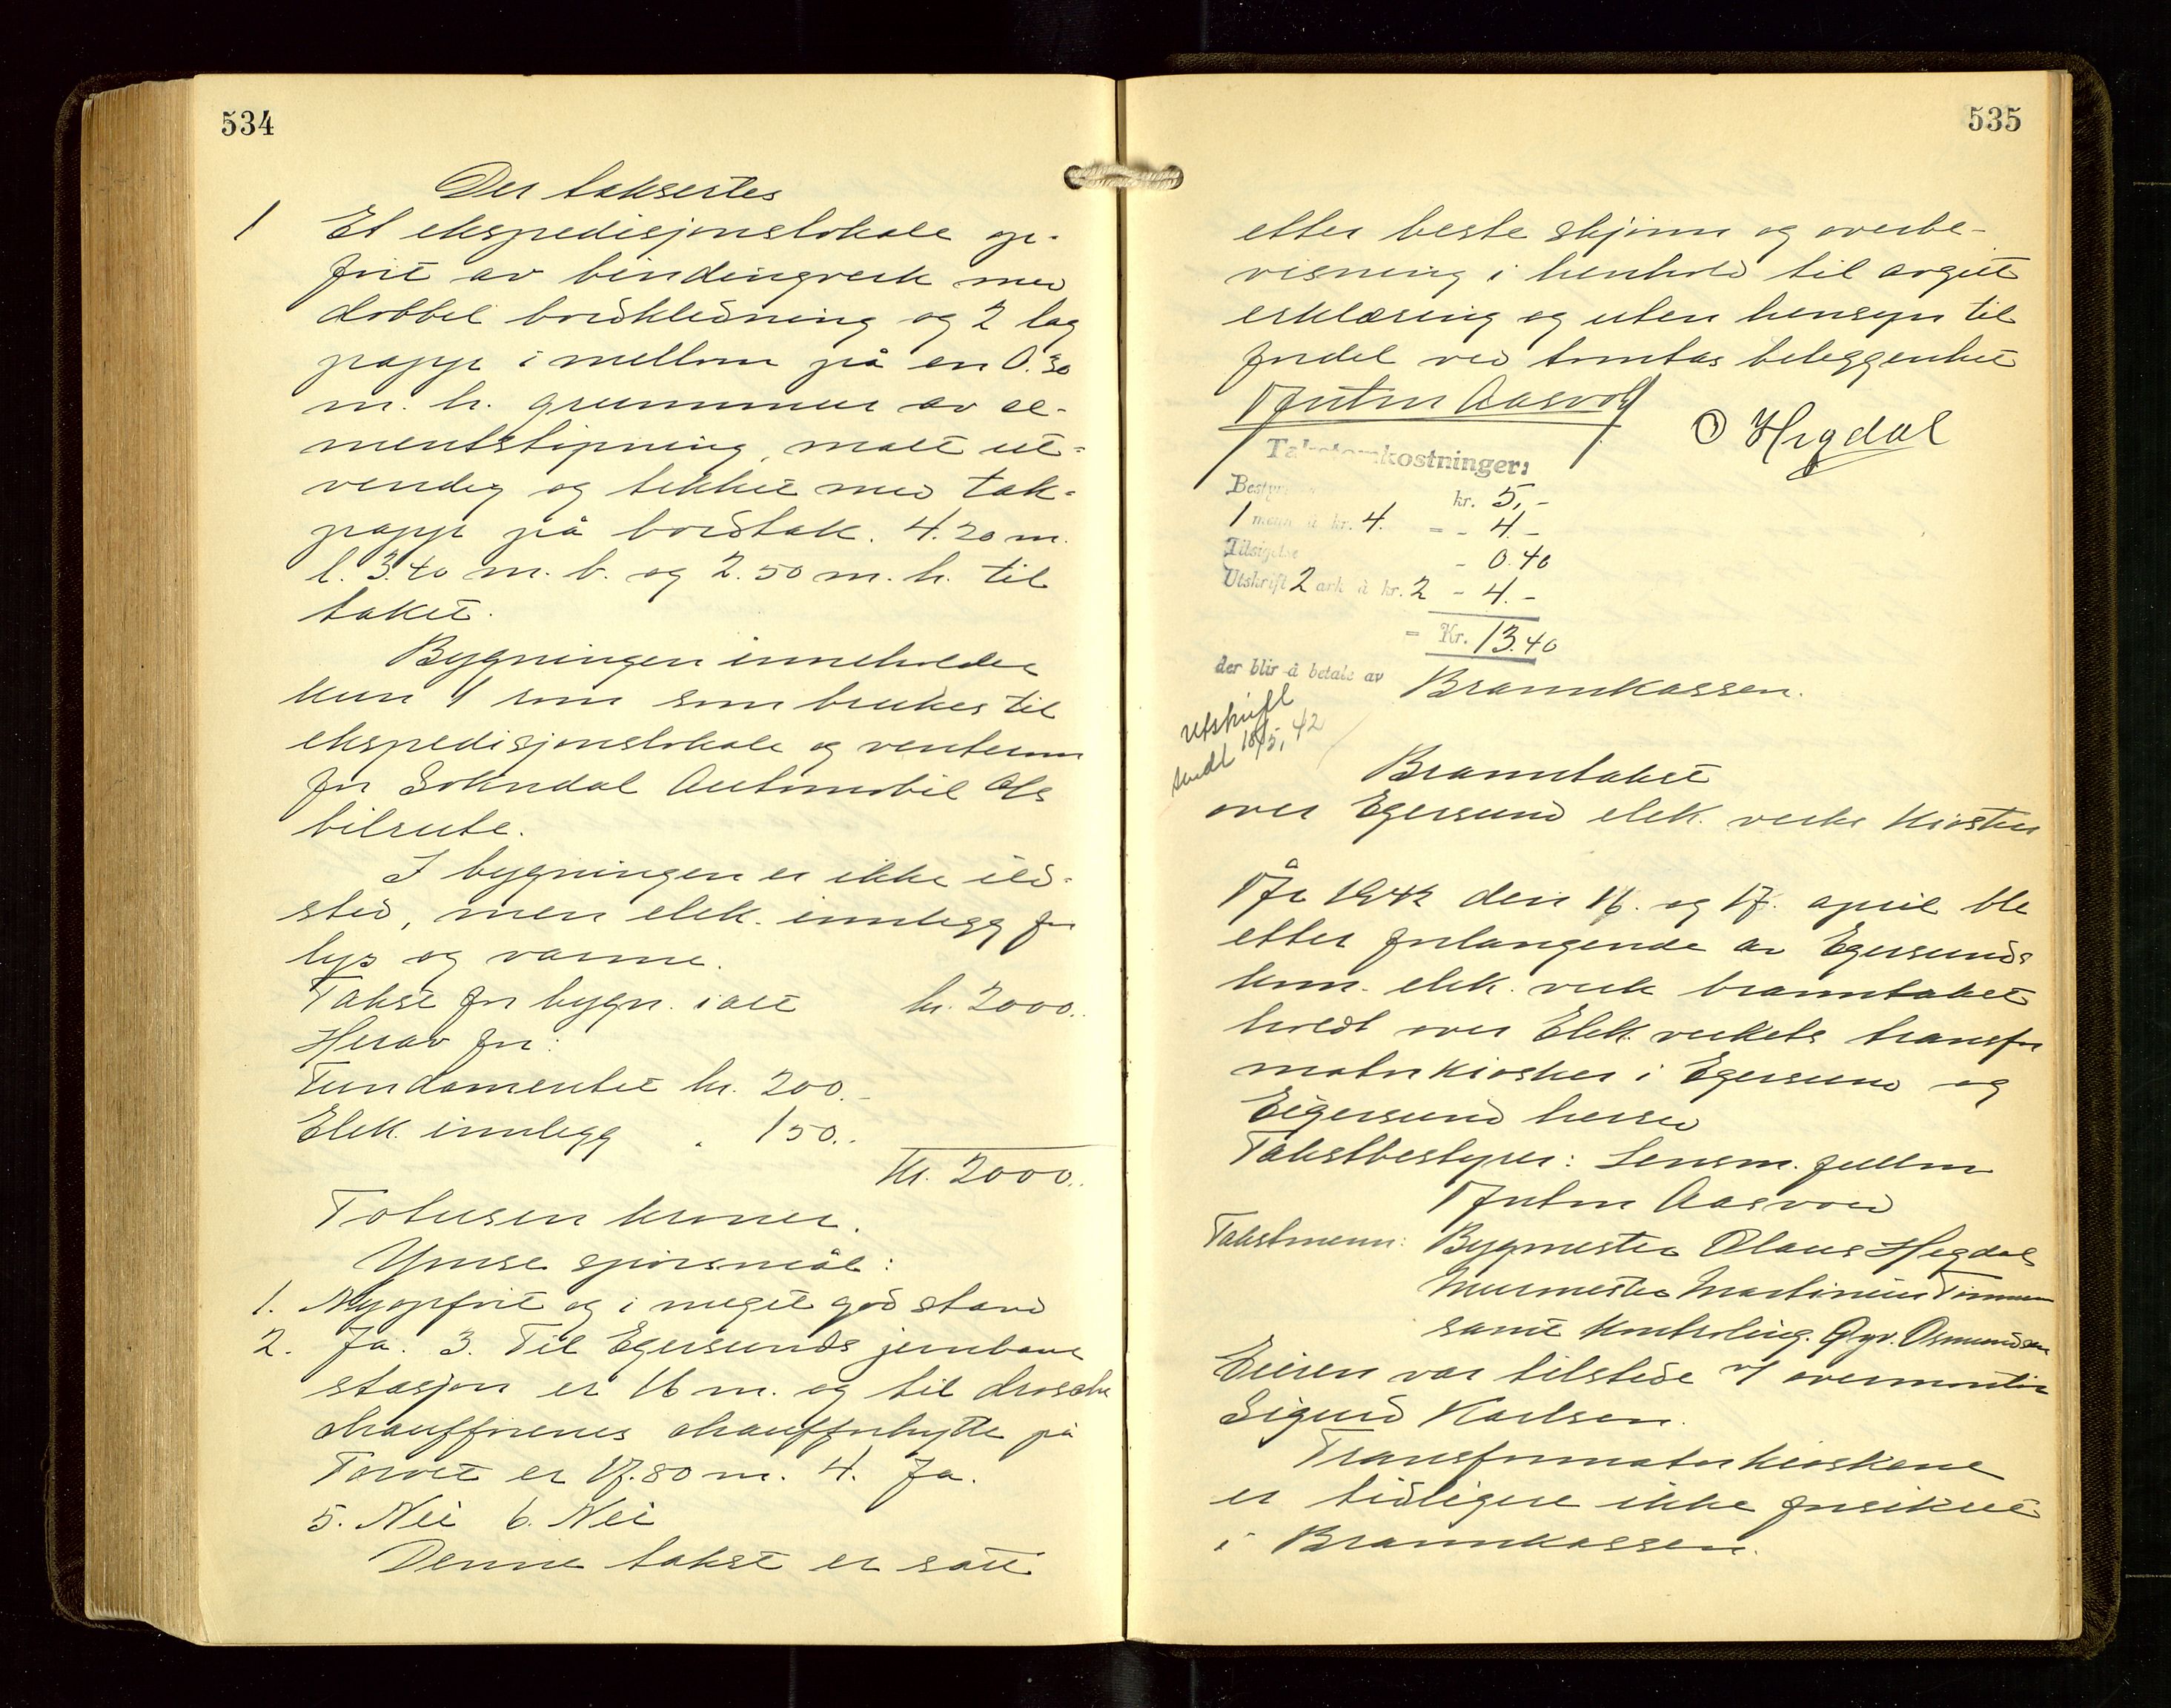 534
Der taksertes
1 Et ekspedisjonslokale op-
ført av bindingverk med
dobbel bordkledning og 2 lag
papp i mellom på en 0.30
m. h. grunnmur av se-
mentstøpning, malt ut-
vendig og tekket med tak-
papp på bordtak. 4.20 m.
l. 3.40 m. b. og 2.50 m. h. til
taket.
Bygningen inneholder
kun 1 rom som brukes til
ekspedisjonslokale og venterum
for Sokndal Automobil A/s
bilrute.
I bygningen er ikke ild-
sted, men elek. innlegg for
lys og varme.
Takst for bygn. i alt kr. 2000.-
Herav for:
Fundamentet kr. 200.-
Elek. innlegg " 150.-
Kr. 2000.-
Totusen kroner.
Ymse spørsmål:
1. Nyopført og i meget god stand
2. Ja. 3. Til Egersunds jernbane
stasjon er 16 m. og til drosche
chaufførenes chaufførhytte på
Torvet er 17.80 m. 4. Ja.
5. Nei 6. Nei
Denne takst er satt
535
etter beste skjønn og overbe-
visning i henhold til avgitt
erklæring og uten hensyn til
fordel ved tomtas beliggenhet
Aasvold
O Hegdal
Takstomkostninger:
kr. 5,-
1 mann à kr. 4. = - 4.-
Tilsigelse - 0.40
Utskrift 2 ark à kr. 2 - 4.-
= Kr. 13.40
der blir å betale av Brannkassen.
Utskrift
sendt 18/5, 42
Branntakst
over Egersund elek. verks kiosker
År 1942 den 16. og 17. april ble
etter forlangende av Egersunds
kom. elek. verk branntakst
holdt over Elek. verkets transfor
matorkiosker i Egersund og
Eigersund herred
Takstbestyrer: Lensm. fullm
Aasvold
Takstmenn: Bygmester Olaus Hegdal
Murmester Martinius
samt kontroling. Osmundsen
Eieren var tilstede v/ overmontør
Sigurd Karlsen.
Transformatorkioskene
er tidligere ikke forsikret
i Brannkassen.